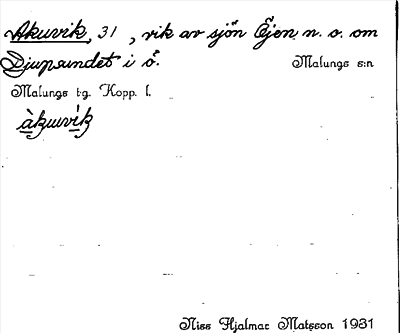 Akuvik, 31, vik av sjön Öjen n. o. om
Djupsundet i ö. Malungs s:n
Malungs tg. Kopp. l.
àkuvík
Niss Hjalmar Matsson 1931